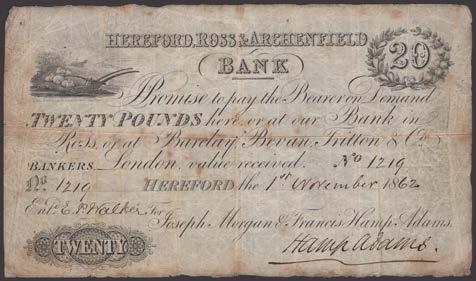 HEREFORD, ROSS & ARCHENFIELD
20
BANK
I Promise to pay the Bearer on Demand
TWENTY POUNDS here, or at our Bank in
Ross, or at Barclay, Bevan, Tritton & Co.
BANKERS London, value received. No 1219
No 1219 HEREFORD the 1st November 1862
Entd. E.P. Walker For Joseph Morgan & Francis Hamp Adams.
TWENTY Hamp Adams.